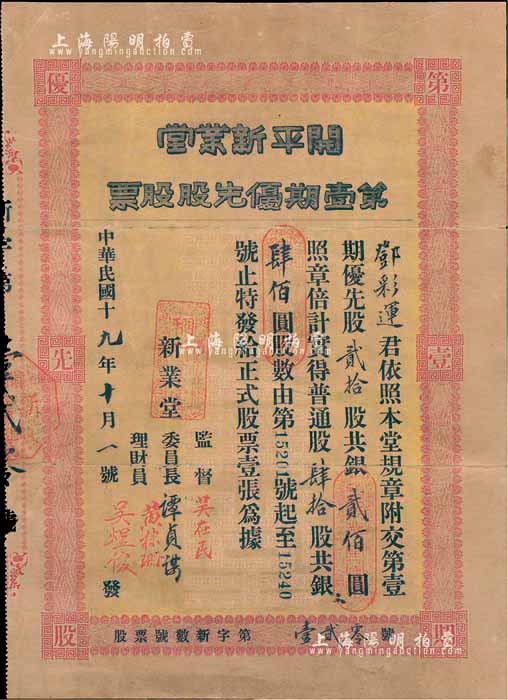 上海陽明拍賣
www.yangmingauction.com
第
優
壹
先
股
開平新業堂
第壹期優先股股票
鄧彩運君依照本堂規章附交第壹
期優先股貳拾股共銀貳佰圓
照章倍計實得普通股肆拾股共銀
肆佰圓股數由第15201號起至15240
號止特發給正式股票壹張為據
新業堂
監督 吳在民
委員長 譚貞謀
理財員
中華民國十九年十月一號 發
股票號數新字第壹貳零號
上海陽明拍賣
www.yangmingauction.com
上海陽明拍賣
www.yangmingauction.com